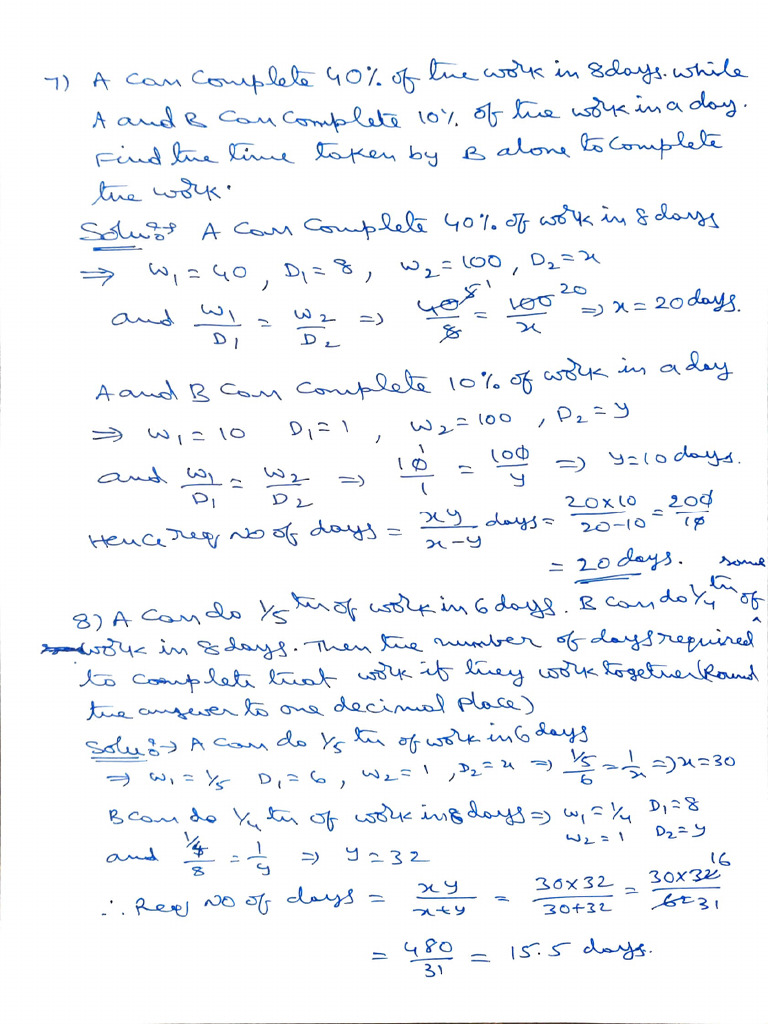 7) A can complete 40% of the work in 8 days. while
A and B can complete 10% of the work in a day.
Find the time taken by B alone to complete
the work.
Solu:→ A can complete 40% of work in 8 days
⇒ W₁ = 40, D₁ = 8, W₂ = 100, D₂ = x
and W₁/D₁ = W₂/D₂ ⇒ 40/8 = 100/x ⇒ x = 20 days.
A and B can complete 10% of work in a day
⇒ W₁ = 10 D₁ = 1, W₂ = 100, D₂ = y
and W₁/D₁ = W₂/D₂ ⇒ 10/1 = 100/y ⇒ y = 10 days.
Hence req NO of days = xy/x-y days = 20×10/20-10 = 200/10
= 20 days.
8) A can do 1/5 th of work in 6 days. B can do 1/4 th of some
work in 8 days. Then the number of days required
to complete that work if they work together (Round
the answer to one decimal place)
Solu:→ A can do 1/5 th of work in 6 days
⇒ W₁ = 1/5 D₁ = 6, W₂ = 1, D₂ = x ⇒ 1/5/6 = 1/x ⇒ x = 30
B can do 1/4 th of work in 8 days ⇒ W₁ = 1/4 D₁ = 8
W₂ = 1 D₂ = y
and 1/4/8 = 1/y ⇒ y = 32
∴ Req NO of days = xy/x+y = 30×32/30+32 = 30×32 16/62 31
= 480/31 = 15.5 days.